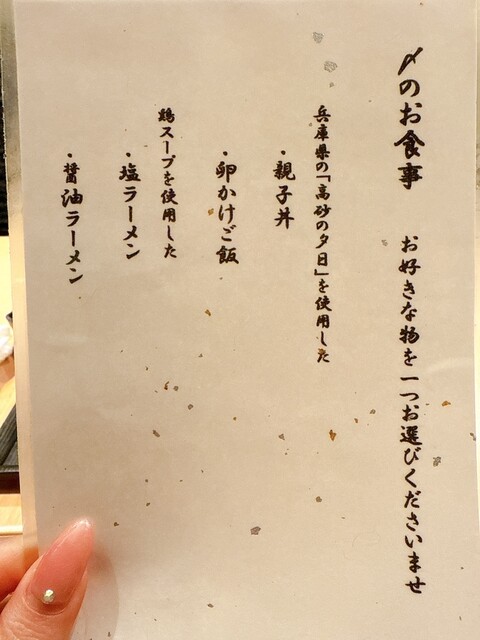 〆のお食事　お好きな物を一つお選びくださいませ
兵庫県の「高砂の夕日」を使用した
・親子丼
・卵かけご飯
鶏スープを使用した
・塩ラーメン
・醤油ラーメン